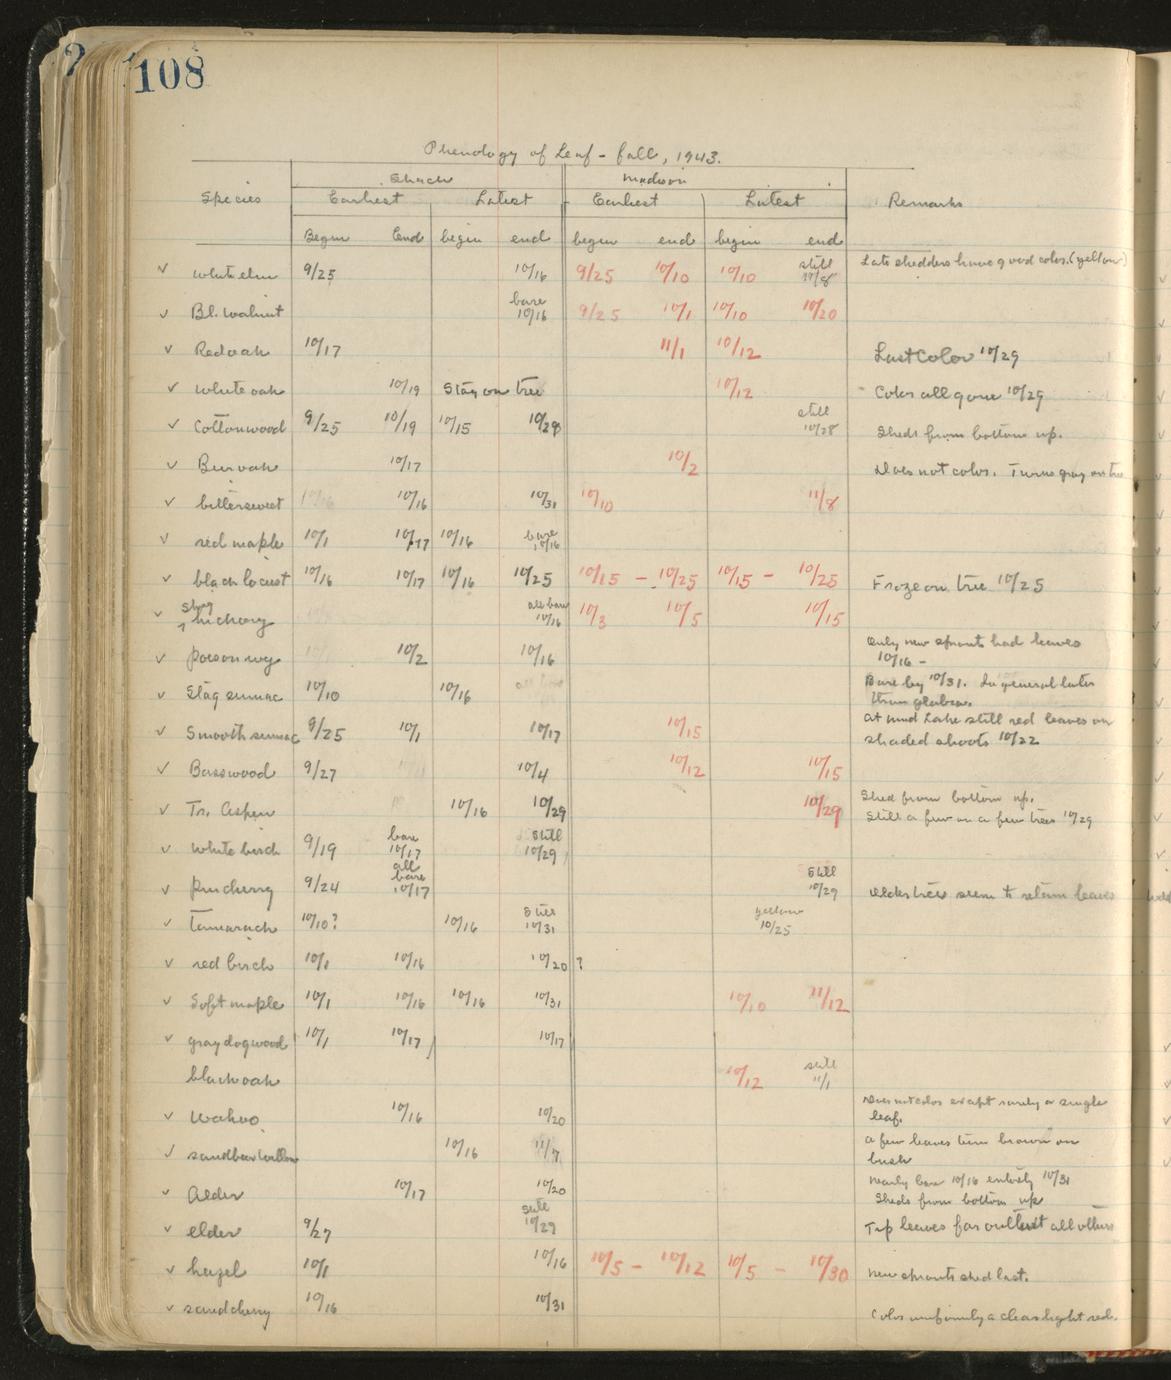 108
Phenology of Leaf-fall, 1943.
Species Shack Madison Remarks
Earliest Latest Earliest Latest
Begin End begin end begin end begin end
✓ white elm 9/25 10/16 9/25 10/10 10/10 still 11/8 Late shedders have good color. (yellow)
✓ Bl. walnut bare 10/16 9/25 10/1 10/10 10/20
✓ Red oak 10/17 11/1 10/12 Last Color 10/29
✓ White oak 10/19 Stay on tree 10/12 Color all gone 10/29
✓ Cottonwood 9/25 10/19 10/15 10/29 still 10/28 Sheds from bottom up.
✓ Bur oak 10/17 10/2 Does not color. Turns gray on tree
✓ bittersweet 10/16 10/31 10/10 11/8
✓ red maple 10/1 10/17 10/16 bare 10/16
✓ black locust 10/16 10/17 10/16 10/25 10/15 - 10/25 10/15 - 10/25 Froze on tree 10/25
✓ Shag hickory all bare 10/16 10/3 10/5 10/15
✓ poison ivy 10/2 10/16 Only new sprouts had leaves
10/16 -
✓ Stag sumac 10/10 10/16 Bare by 10/31. In general later
than glabra.
✓ Smooth sumac 9/25 10/1 10/17 10/15 at mud Lake still red leaves on
shaded shoots 10/22
✓ Basswood 9/27 10/4 10/12 10/15
✓ Tr. Aspen 10/16 10/29 10/29 Shed from bottom up.
Still a few on a few trees 10/29
✓ White birch 9/19 bare 10/17 still 10/29
✓ pin cherry 9/24 all bare 10/17 still 10/29 Older trees seem to retain leaves
✓ Tamarack 10/10? 10/16 still 10/31 yellow 10/25
✓ red birch 10/1 10/16 10/20 ?
✓ Soft maple 10/1 10/16 10/16 10/31 10/10 11/12
✓ gray dogwood 10/1 10/17 10/17
black oak 10/12 still 11/1
✓ Wahoo 10/16 10/20 Does not color except rarely a single
leaf.
✓ sandbar willow 10/16 11/7 a few leaves turn brown on
bush
✓ Alder 10/17 10/20 nearly bare 10/16 entirely 10/31
Sheds from bottom up
✓ elder 9/27 still 10/29 Top leaves far outlast all others
✓ hazel 10/1 10/16 10/5 - 10/12 10/5 - 10/30 New sprouts shed last.
✓ sand cherry 10/16 10/31 Color uniformly a clear light red.